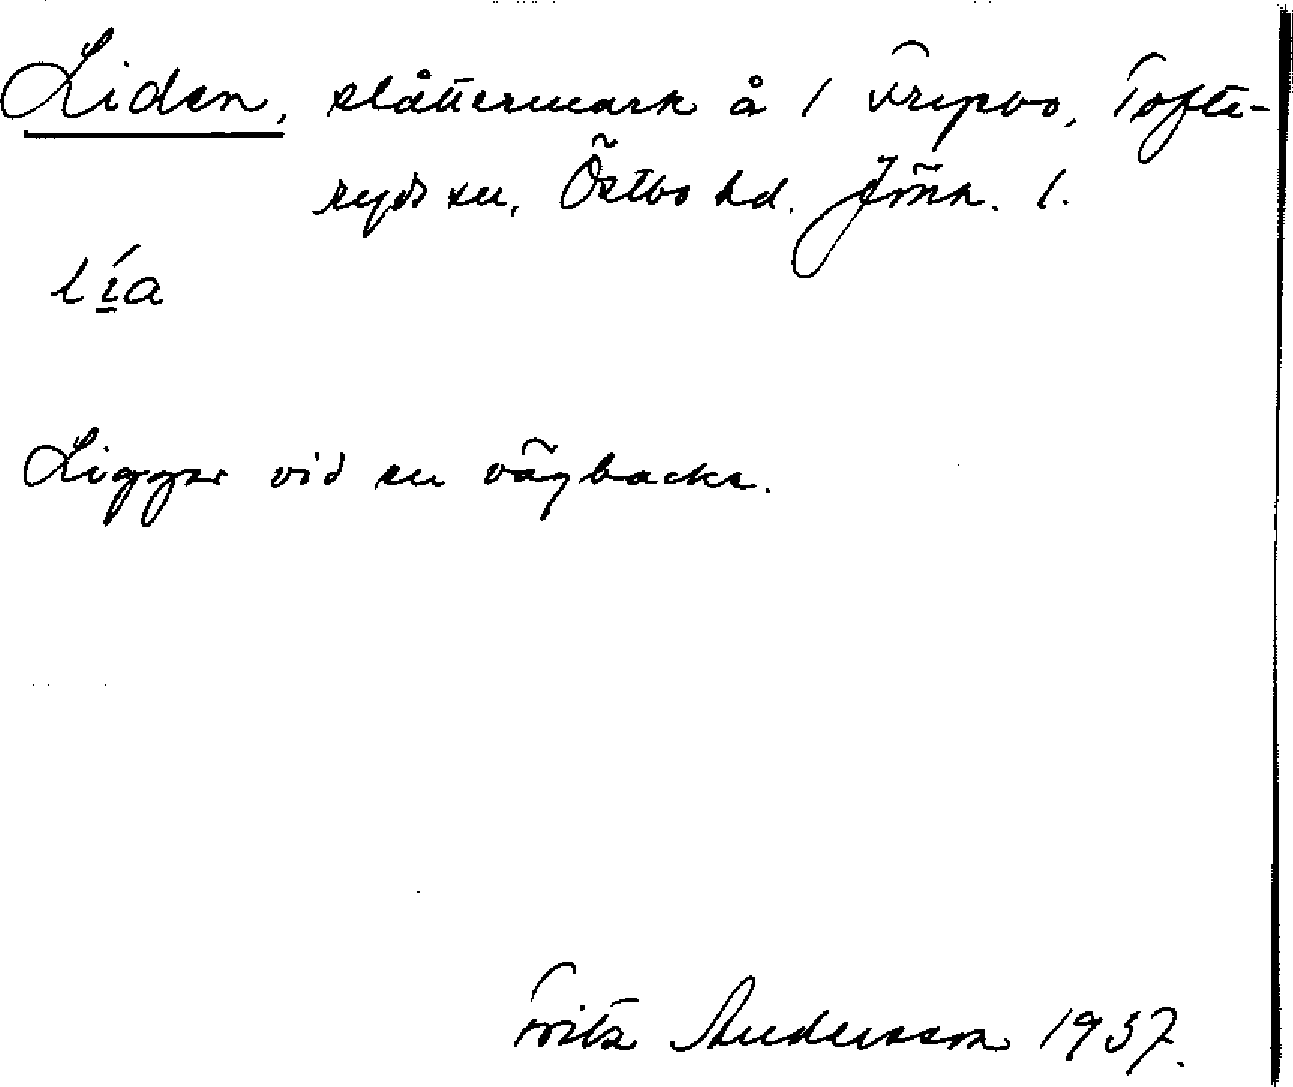 Liden, slåttermark å 1 Frejsbo, Tofte-
ryds sn, Östbo hd. Jönk. l.
lía
Ligger vid en vägbacke.
Fritz Andersson 1937.